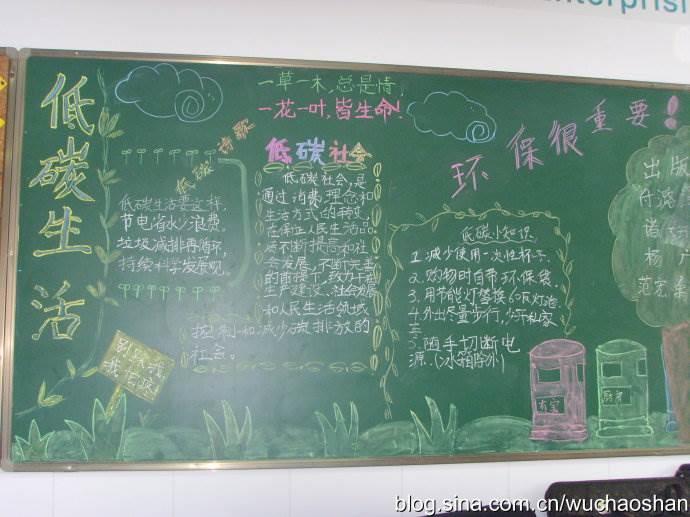 enterpris
低碳生活
一草一木,总是情,
一花一叶,皆生命!
环保很重要!
低碳诗歌
低碳生活要这样,
节电省水少浪费。
垃圾减排再循环,
持续科学发展观。
低碳社会
低碳社会,是
通过消费理念和
生活方式的转变,
在保证人民生活品
质不断提高和社
会发展不断完善
的前提下,致力于
生产建设、社会发展
和人民生活领域
控制和减少碳排放的
社会。
低碳小知识
1.减少使用一次性杯子
2.购物时自带环保袋。
3.用节能灯替换60瓦灯泡
4.外出尽量步行,少开私家
车
5.随手切断电
源.(冰箱除外)
出版
杨
范宏
别踩我
我怕疼
blog.sina.com.cn/wuchaoshan